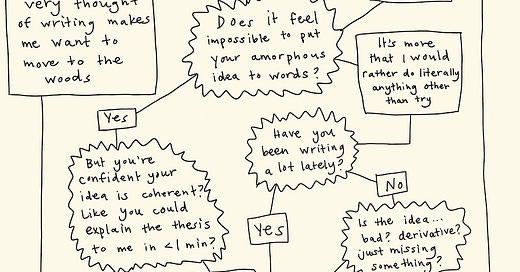 very thought
of writing makes
me want to
move to the
woods
Does it feel
impossible to put
your amorphous
idea to words?
It's more
that I would
rather do literally
anything other
than try
Yes
Have you
been writing
a lot lately?
But you're
confident your
idea is coherent?
Like you could
explain the thesis
to me in <1 min?
No
Yes
Is the idea...
bad? derivative?
just missing
something?